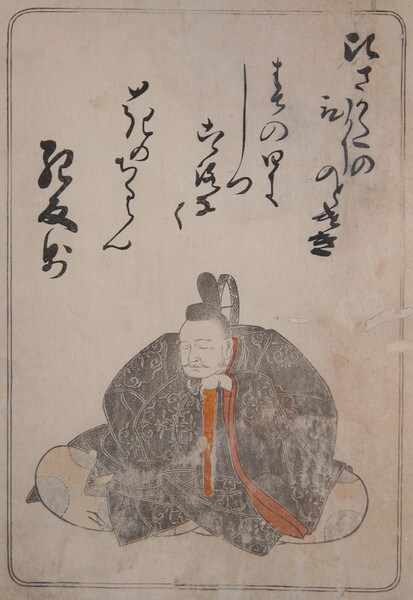 ひさかたの
ひかり
のとけき
はるの日に
しつ
こゝろな
く
花のちるらん
紀友則